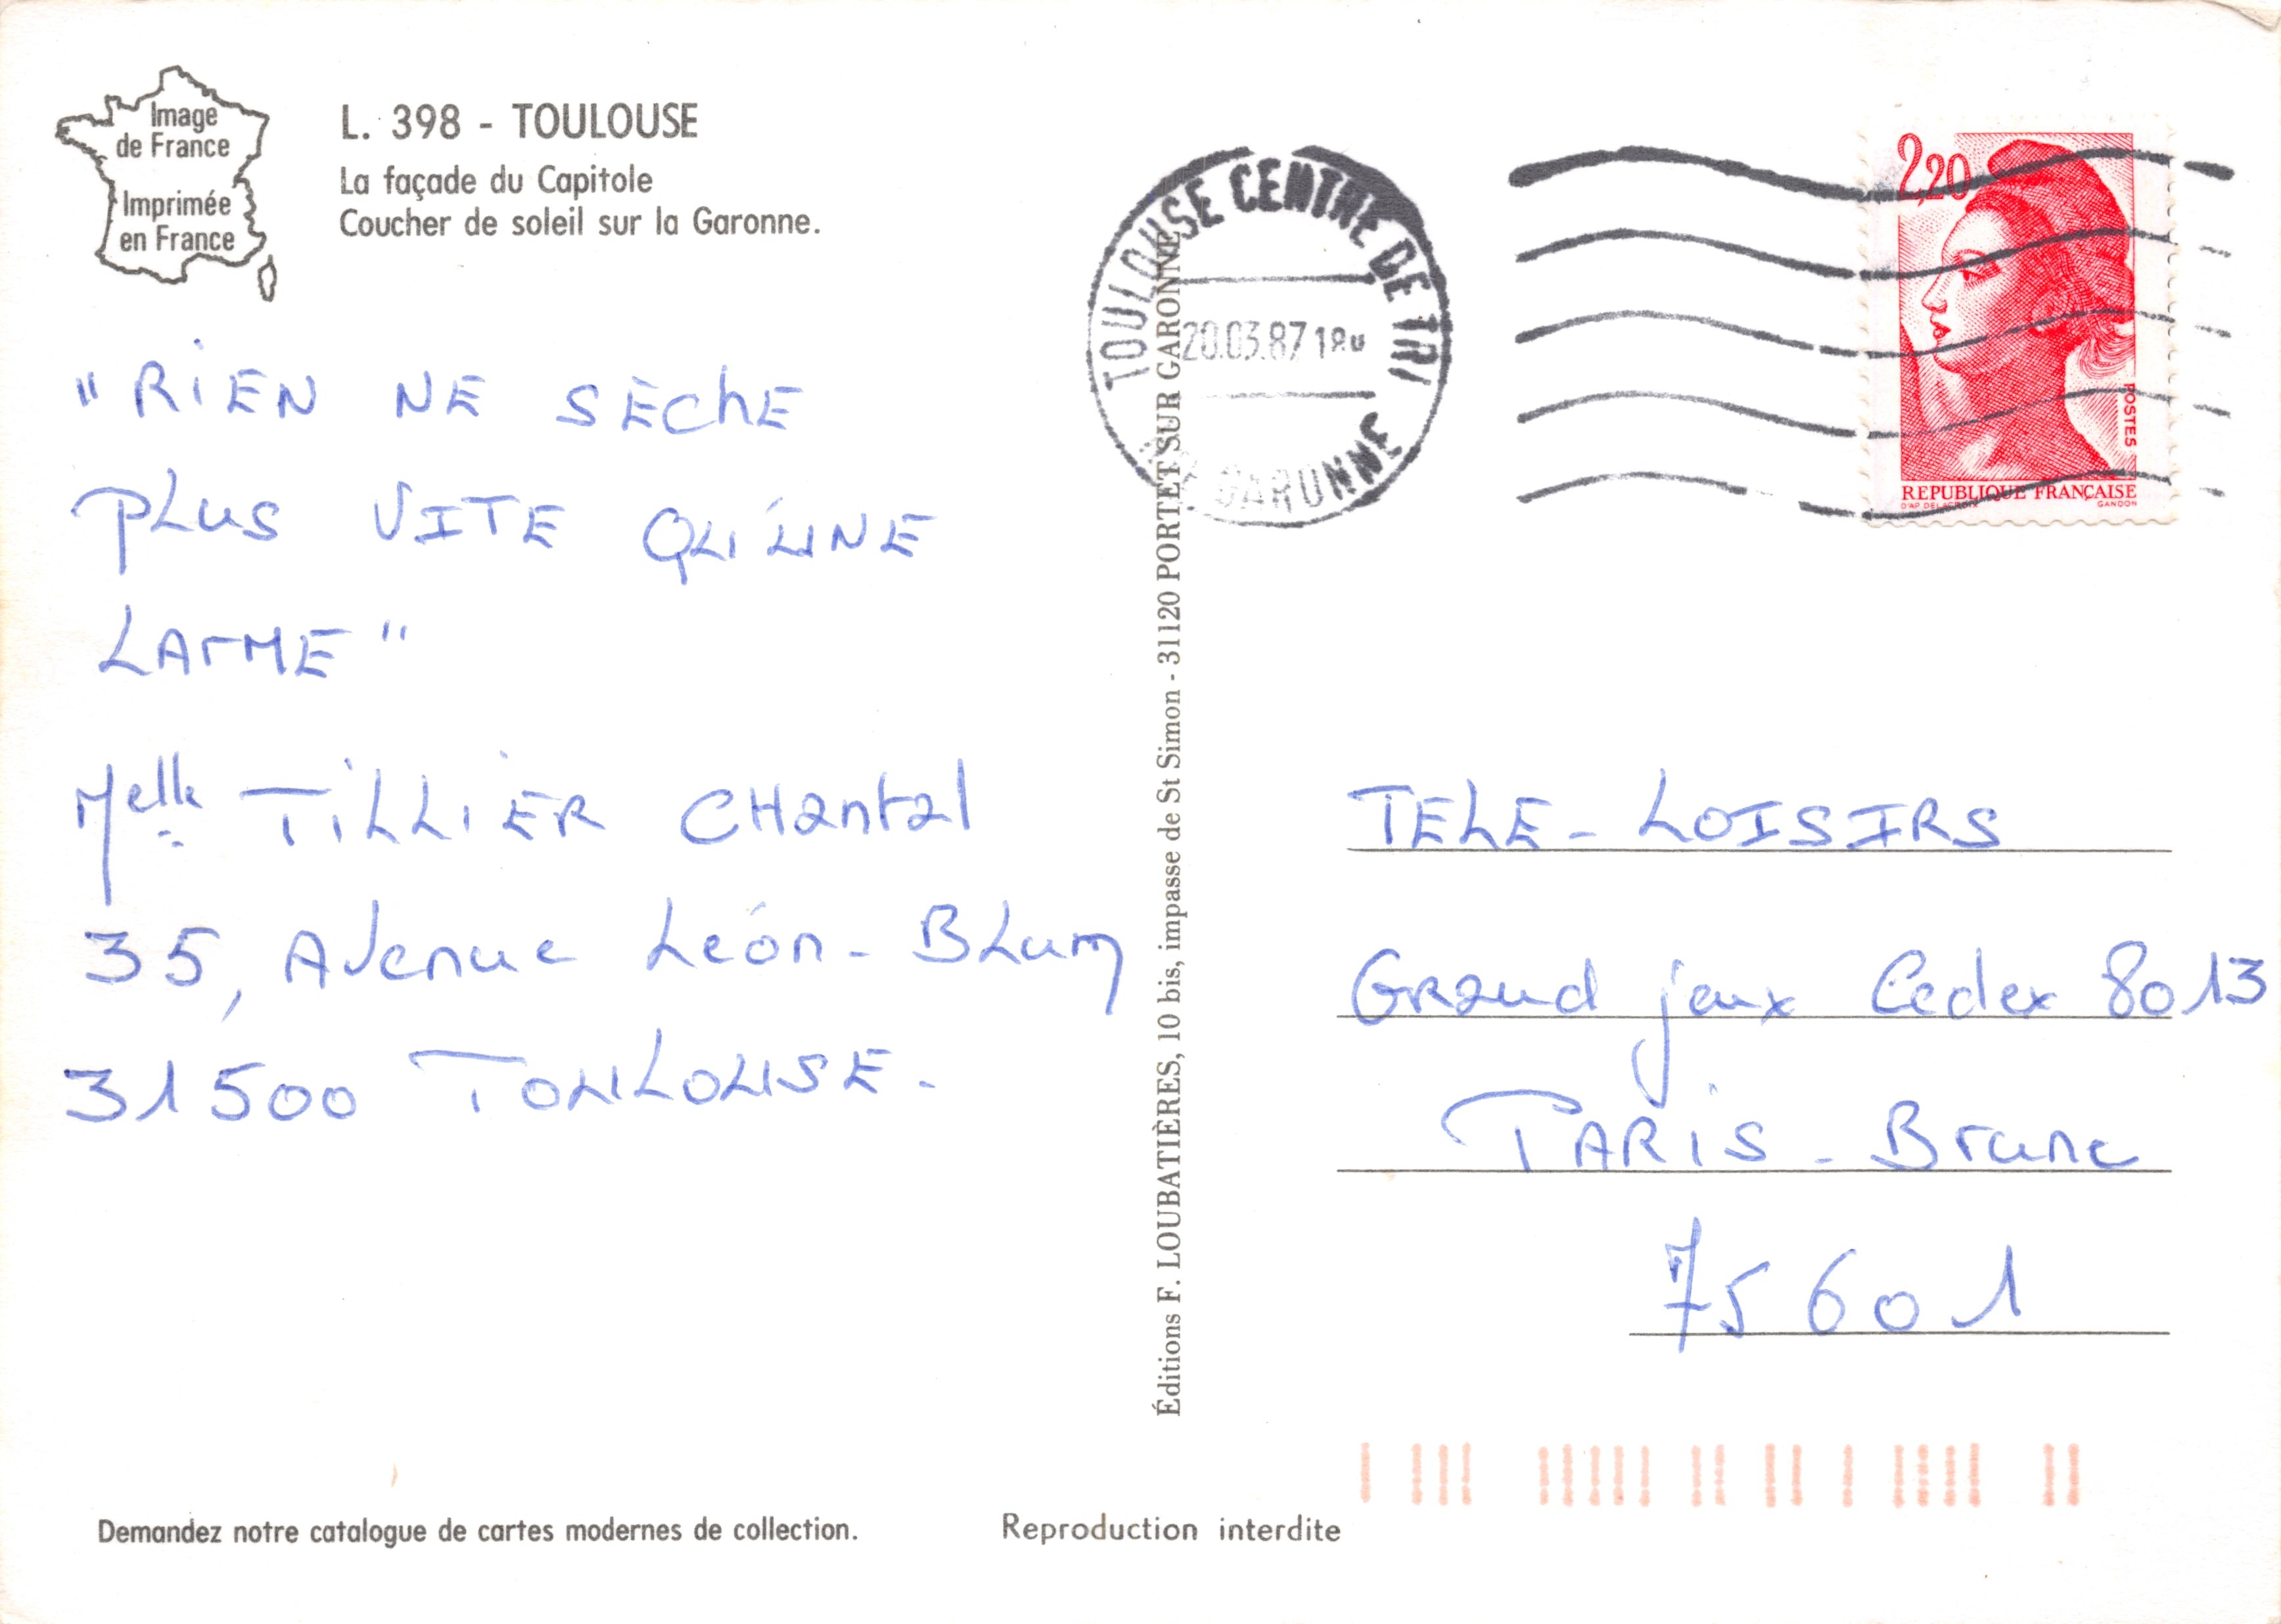 Image
de France
Imprimée
en France
L. 398 - TOULOUSE
La façade du Capitole
Coucher de soleil sur la Garonne.
"RiEN NE SÈChE
PLUS VITE QU'UNE
LArME"
Melle TiLLiER CHantal
35, Avenue Léon-BLum
31500 TOULOUSE.
TOULOUSE CENTRE DE TRI
20.03.87 18H
GARONNE
2,20
POSTES
REPUBLIQUE FRANÇAISE
D'AP. DELACROIX GANDON
Éditions F. LOUBATIÈRES, 10 bis, impasse de St Simon - 31120 PORTET SUR GARONNE
TELE-LOISIRS
GRand jeux Cedex 8013
PARiS - Brune
75601
Demandez notre catalogue de cartes modernes de collection.
Reproduction interdite